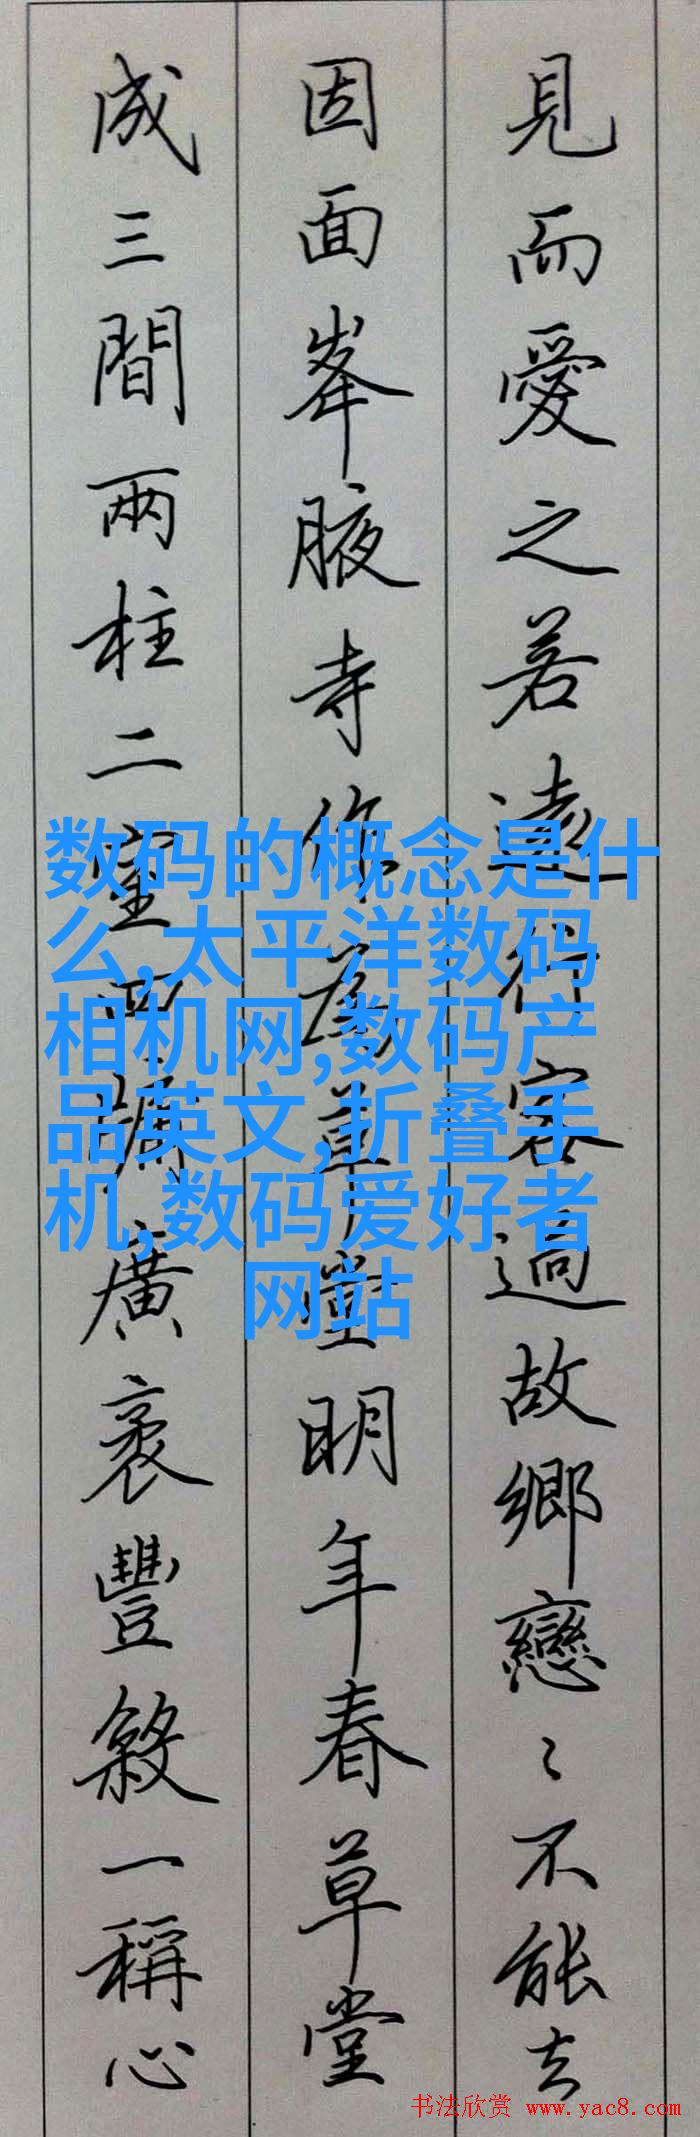 見而愛之若遠行客過故鄉戀〻不能去
因面峯腋寺作為草堂明年春草堂
成三間兩柱二室四牖廣袤豐殺一稱心
数码的概念是什
么,太平洋数码
相机网,数码产
品英文,折叠手
机,数码爱好者
网站
书法欣赏 www.yac8.com